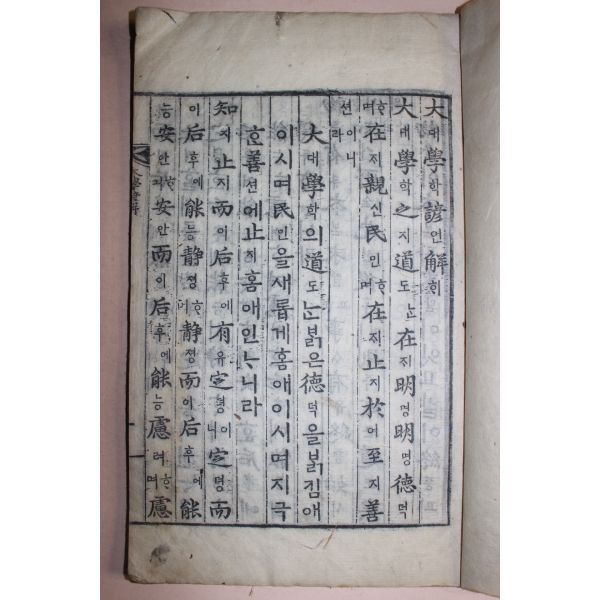 大대學학諺언解ᄒᆡ
大대學학之지道도ᄂᆞᆫ在ᄌᆡ明명明명德덕
ᄒᆞ며在ᄌᆡ親신民민ᄒᆞ며在ᄌᆡ止지於어至지善
션이니라
大대學학의道도ᄂᆞᆫᄇᆞᆰ은德덕을ᄇᆞᆰ김애
이시며民민을새롭게홈애이시며지극
ᄒᆞᆫ善션에止지홈애인ᄂᆞ니라
知지止지而이后후에有유定뎡이니定뎡而
이后후에能능静졍ᄒᆞ며静졍而이后후에能
능安안ᄒᆞ며安안而이后후에能능慮려ᄒᆞ며慮
大學諺解
一